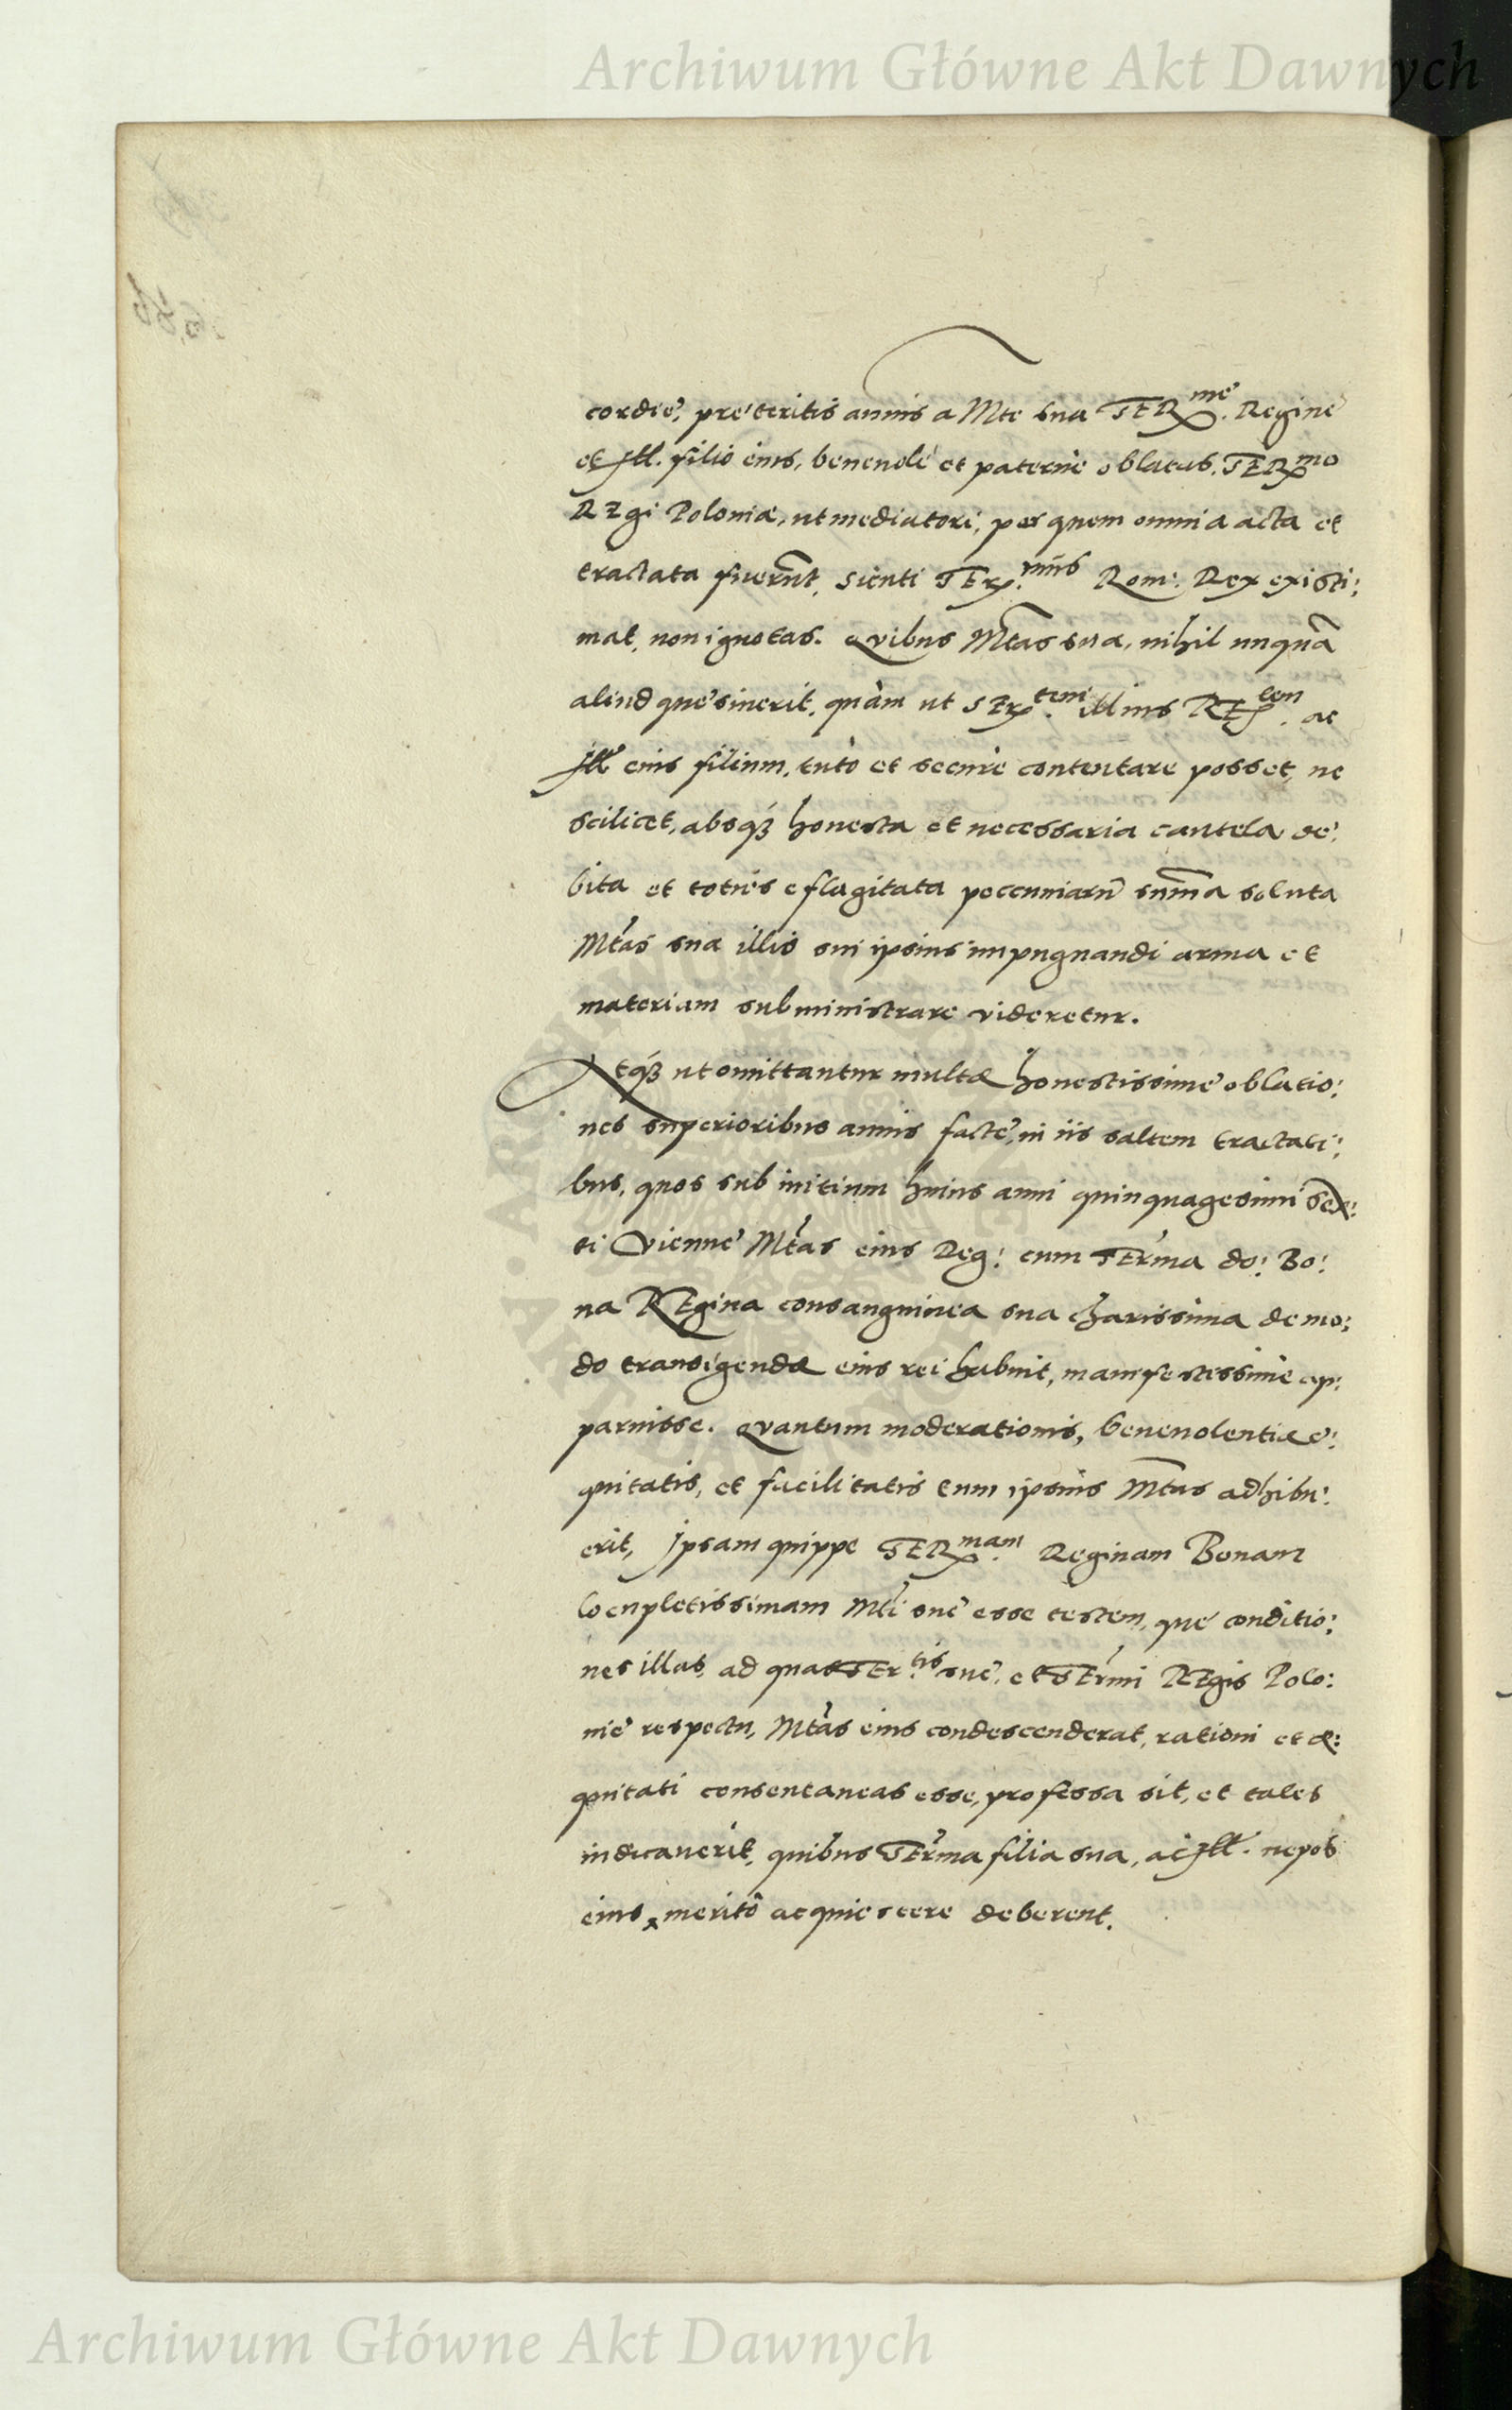 Archiwum Główne Akt Dawnych
cordie, preteritis annis a Mte sua SER^me. Regine
et Ill. filio eius, beneuole et paterne oblatas, SER^mo
REgi Poloniæ, ut mediatori, per quem omnia acta et
tractata fuerũt, sicuti SEr.^mus Rom: Rex existi:
mat, non ignotas. Quibus Mtas sua, nihil unquã
aliud quesiuerit, quàm ut SEr^tem. illius REg^lem. ac
Ill eius filium, tutò et secure contentare posset, ne
scilicet, absq3 honesta et necessaria cautela de:
bita et toties eflagitata peccuniarũ sum̃a soluta
Mtas sua illis sui ipsius impugnandi arma et
materiam subministrare videretur.
Atq3 ut omittantur multæ honestissime oblatio:
nes superioribus annis facte, in iis saltem tractati:
bus, quos sub initium huius anni quinquagesimi sex:
ti Vienne Mtas eius Reg: cum SErma do: Bo:
na REgina consanguinea sua charissima de mo:
do transigendæ eius rei habuit, manifestissime ap:
paruisse. Quantum moderationis, beneuolentiæ e:
quitatis, et facilitatis tum ipsius Mtas adhibu:
erit, Ipsam quippe SER^mam. Reginam Bonam
locupletissimam Mti sue esse testem, que conditio:
nes illas, ad quas SEr.^tis sue, et SErmi REgis Polo:
nie respectu, Mtas eius condescenderat, rationi et æ:
quitati consentaneas esse, professa sit, et tales
indicauerit, quibus SErma filia sua, ac Ill. nepos
eius merito acquiescere deberent.
Archiwum Główne Akt Dawnych